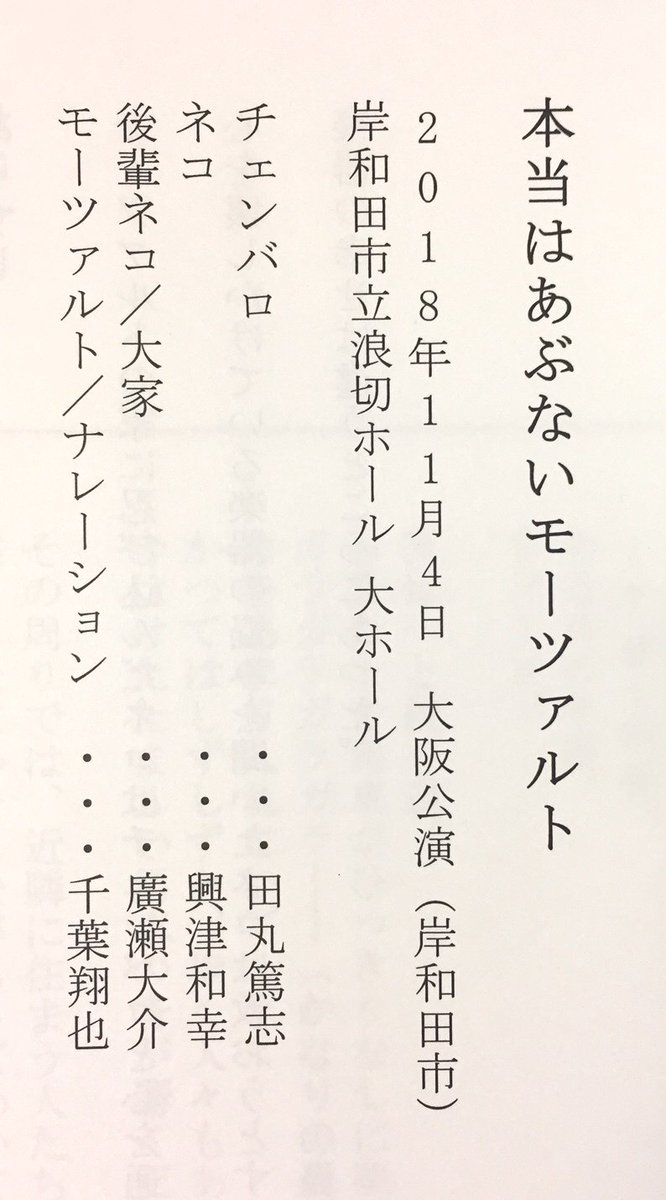 本当はあぶないモーツァルト
2018年11月4日 大阪公演(岸和田市)
岸和田市立浪切ホール 大ホール
チェンバロ ・・・田丸篤志
ネコ ・・・興津和幸
後輩ネコ/大家 ・・・廣瀬大介
モーツァルト/ナレーション ・・・千葉翔也